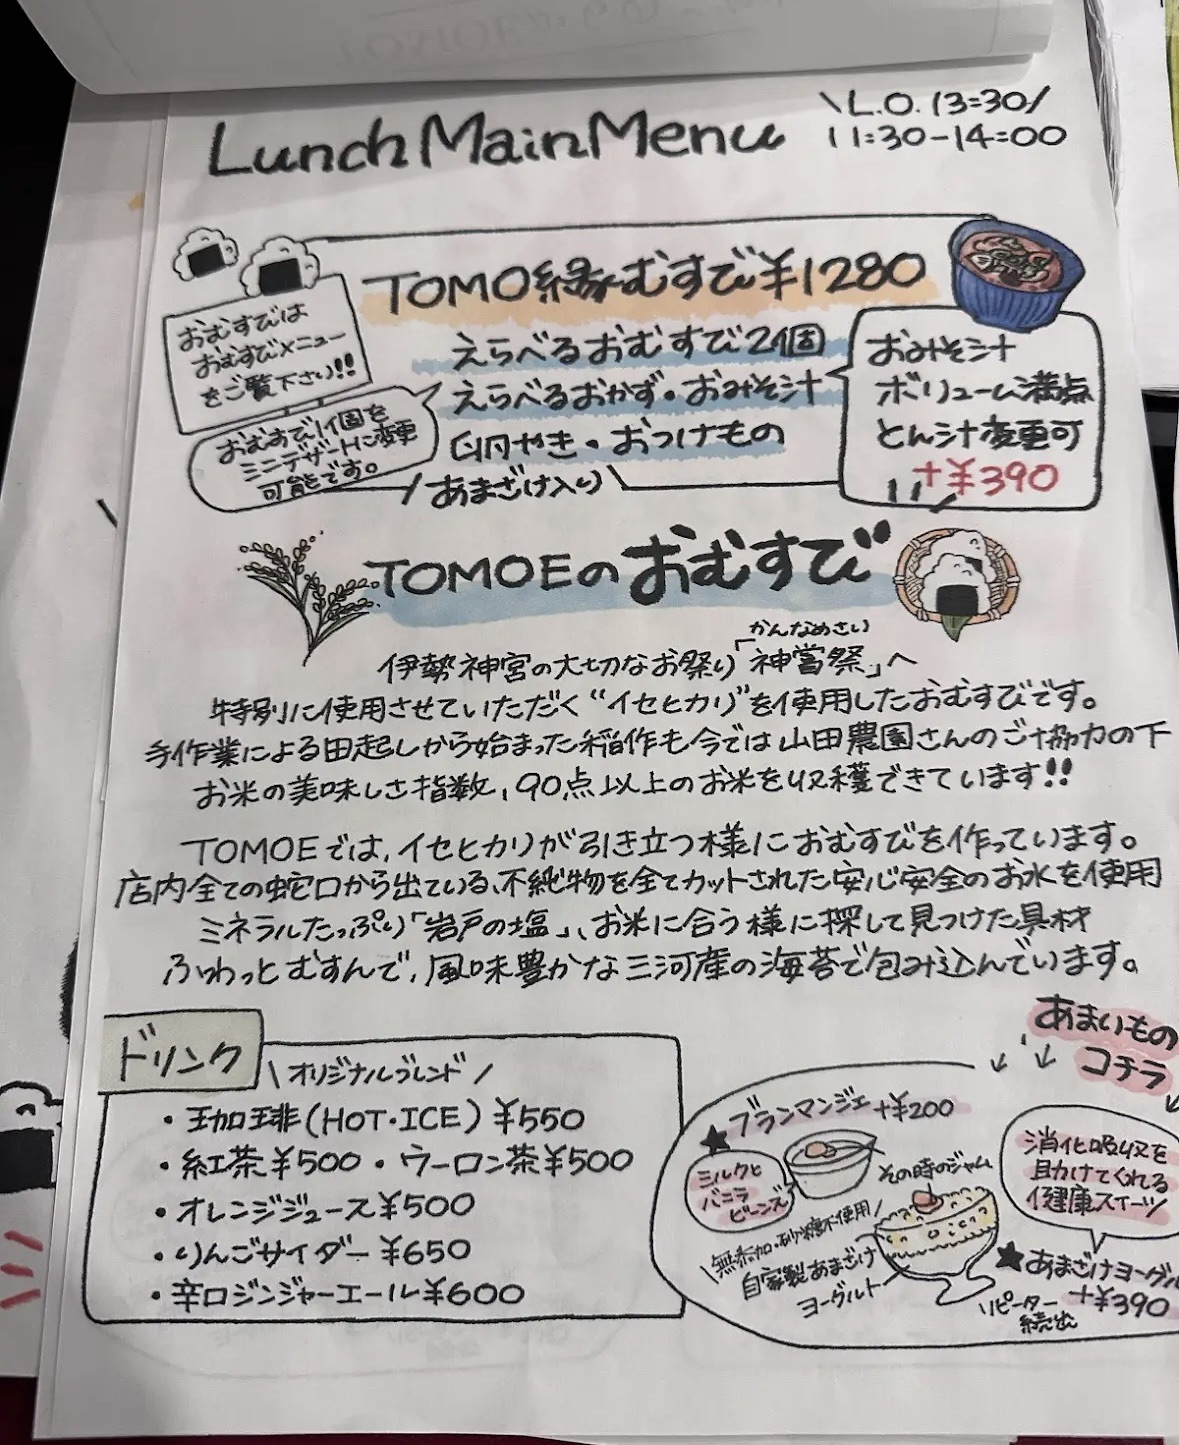 Lunch Main Menu
\L.O. 13:30/
11:30-14:00
TOMO縁むすび¥1280
おむすびは
おむすびメニュー
をご覧下さい!!
えらべるおむすび2個
えらべるおかず・おみそ汁
卵やき・おつけもの
\あまざけ入り/
おむすび1個を
ミニデザートに変更
可能です。
おみそ汁
ボリューム満点
とん汁変更可
+¥390
TOMOEのおむすび
かんなめさい
伊勢神宮の大切なお祭り「神嘗祭」へ
特別に使用させていただく“イセヒカリ”を使用したおむすびです。
手作業による田起しから始まった稲作も今では山田農園さんのご協力の下
お米の美味しさ指数、90点以上のお米を収穫できています!!
TOMOEでは、イセヒカリが引き立つ様におむすびを作っています。
店内全ての蛇口から出ている、不純物を全てカットされた安心安全のお水を使用
ミネラルたっぷり「岩戸の塩」、お米に合う様に探して見つけた具材
ふわっとむすんで、風味豊かな三河産の海苔で包み込んでいます。
ドリンク
\オリジナルブレンド/
・珈琲(HOT・ICE)¥550
・紅茶¥500・ウーロン茶¥500
・オレンジジュース¥500
・りんごサイダー¥650
・辛口ジンジャーエール¥600
あまいもの
コチラ
★ブランマンジェ+¥200
ミルクと
バニラ
ビーンズ
その時のジャム
\無添加・砂糖不使用/
自家製あまざけ
ヨーグルト
消化吸収を
助けてくれる
健康スイーツ
★あまざけヨーグル
+¥390
リピーター
続出